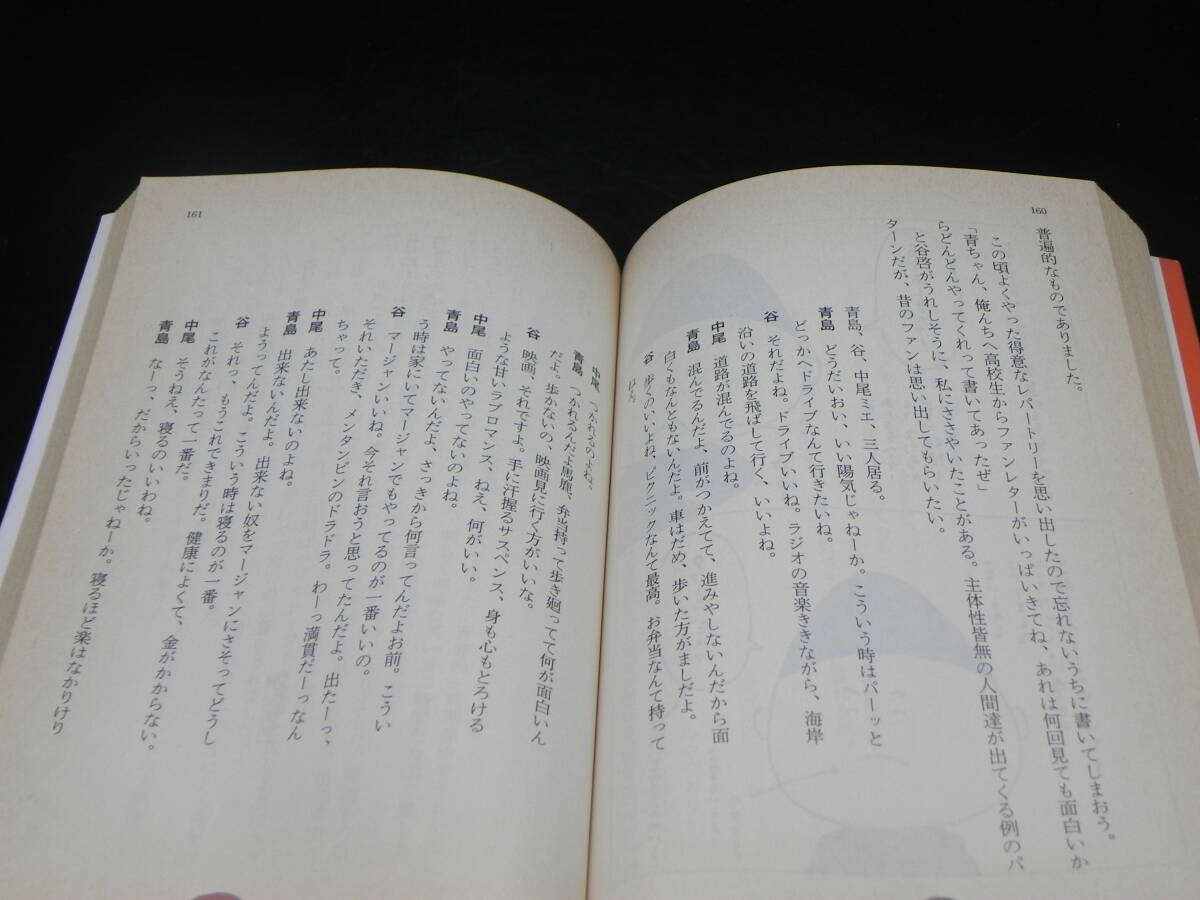 160
普遍的なものでありました。
この頃よくやった得意なレパートリーを思い出したので忘れないうちに書いてしまおう。
「青ちゃん、俺んちへ高校生からファンレターがいっぱいきてね、あれは何回見ても面白いか
らどんどんやってくれって書いてあったぜ」
と谷啓がうれしそうに、私にささやいたことがある。主体性皆無の人間達が出てくる例のパ
ターンだが、昔のファンは思い出してもらいたい。
青島、谷、中尾ミエ、三人居る。
青島 どうだいおい、いい陽気じゃねーか。こういう時はパーッと
どっかへドライブなんて行きたいね。
谷 それだよね。ドライブいいね。ラジオの音楽ききながら、海岸
沿いの道路を飛ばして行く、いいよね。
中尾 道路が混んでるのよね。
青島 混んでるんだよ、前がつかえてて、進みやしないんだから面
白くもなんともないんだよ。車はだめ、歩いた方がましだよ。
谷 歩くのいいよね、ピクニックなんて最高。お弁当なんて持って
161
中尾 つかれるのよね。
青島 つかれるんだよ馬鹿、弁当持って歩き廻ってて何が面白いん
だよ。歩かないの、映画見に行く方がいいな。
谷 映画、それですよ。手に汗握るサスペンス、身も心もとろける
ような甘いラブロマンス、ねえ、何がいい。
中尾 面白いのやってないのよね。
青島 やってないんだよ、さっきから何言ってんだよお前。こうい
う時は家にいてマージャンでもやってるのが一番いいの。
谷 マージャンいいね。今それ言おうと思ってたんだよ。出たーっ、
それいただき、メンタンピンのドラドラ。わーっ満貫だーっなん
ちゃって。
中尾 あたし出来ないのよね。
青島 出来ないんだよ。出来ない奴をマージャンにさそってどうし
ようってんだよ。こういう時は寝るのが一番。
谷 それっ、もうこれできまりだ。健康によくて、金がかからない。
これがなんたって一番だ。
中尾 そうねえ、寝るのいいわね。
青島 なーっ、だからいったじゃねーか。寝るほど楽はなかりけり